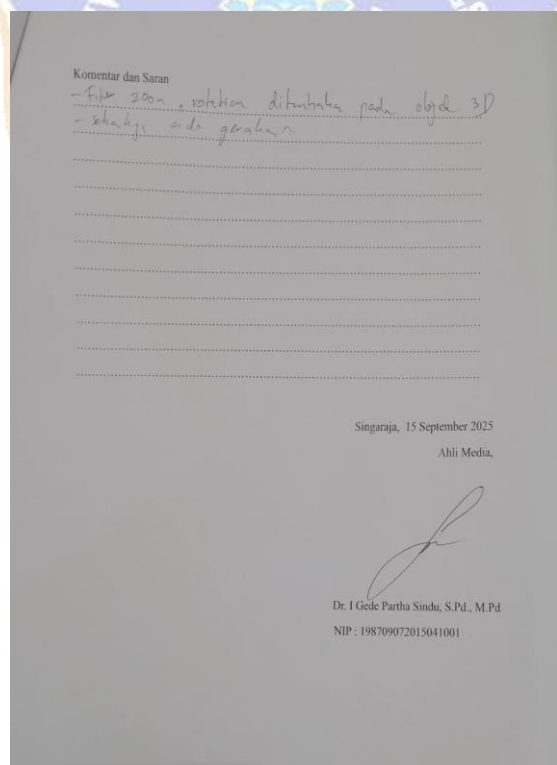 Komentar dan Saran
- Fitur zoom, rotation ditambahkan pada objek 3D
- sebaiknya ada gerakan
Singaraja, 15 September 2025
Ahli Media,
Dr. I Gede Partha Sindu, S.Pd., M.Pd
NIP : 198709072015041001